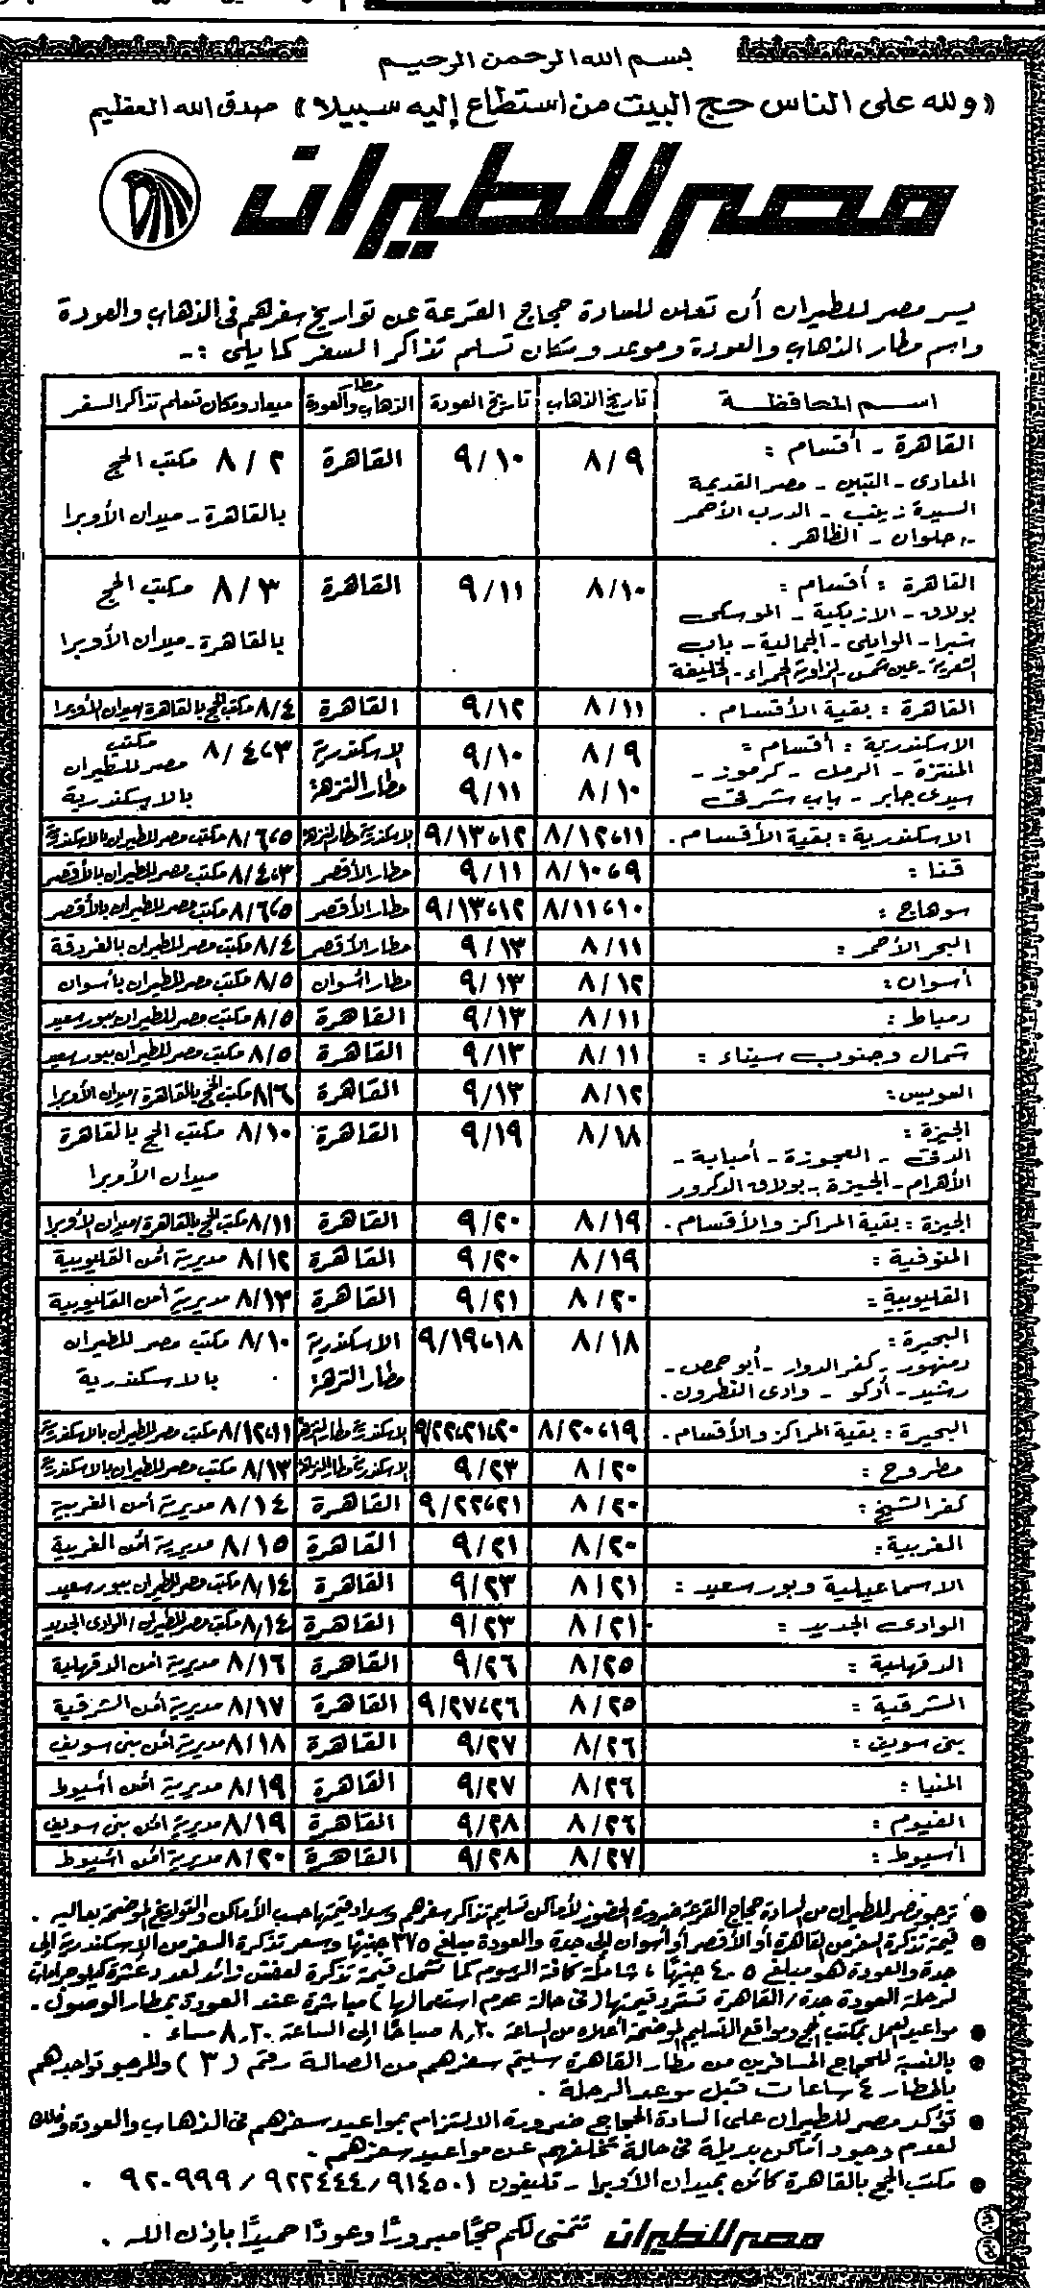 بسم الله الرحمن الرحيم
«ولله على الناس حج البيت من استطاع إليه سبيلا» صدق الله العظيم
مصر للطيران
يسر مصر للطيران أن تعلن للسادة حجاج القرعة عن تواريخ سفرهم فى الذهاب والعودة
واسم مطار الذهاب والعودة وموعد ومكان تسلم تذاكر السفر كما يلى :-
اسم المحافظة | تاريخ الذهاب | تاريخ العودة | مطار الذهاب والعودة | ميعاد ومكان تسلم تذاكر السفر
القاهرة - أقسام : | ٨/٩ | ٩/١٠ | القاهرة | ٨/٢ مكتب الحج
المعادى - التبين - مصر القديمة
السيدة زينب - الدرب الأحمر | بالقاهرة - ميدان الأوبرا
- حلوان - الظاهر .
القاهرة : أقسام : | ٨/١٠ | ٩/١١ | القاهرة | ٨/٣ مكتب الحج
بولاق - الازبكية - الموسكى
شبرا - الوايلى - الجمالية - باب | بالقاهرة - ميدان الأوبرا
الشعرية - عين شمس - الزاوية الحمراء - الخليفة
القاهرة : بقية الأقسام . | ٨/١١ | ٩/١٢ | القاهرة | ٨/٤ مكتب الحج بالقاهرة ميدان الأوبرا
الاسكندرية : أقسام : | ٨/٩ | ٩/١٠ | الاسكندرية | ٨/٤،٣ مكتب
المنتزة - الرمل - كرموز - | مصر للطيران
سيدى جابر - باب شرقى | ٨/١٠ | ٩/١١ | مطار النزهة | بالاسكندرية
الاسكندرية : بقية الأقسام . | ٨/١٢،١١ | ٩/١٣،١٢ | الاسكندرية مطار النزهة | ٨/٦،٥ مكتب مصر للطيران بالاسكندرية
قنا : | ٨/١٠،٩ | ٩/١١ | مطار الأقصر | ٨/٤،٣ مكتب مصر للطيران بالأقصر
سوهاج : | ٨/١١،١٠ | ٩/١٣،١٢ | مطار الأقصر | ٨/٦،٥ مكتب مصر للطيران بالأقصر
البحر الأحمر : | ٨/١١ | ٩/١٣ | مطار الأقصر | ٨/٤ مكتب مصر للطيران بالغردقة
أسوان : | ٨/١٢ | ٩/١٣ | مطار أسوان | ٨/٥ مكتب مصر للطيران بأسوان
دمياط : | ٨/١١ | ٩/١٣ | القاهرة | ٨/٥ مكتب مصر للطيران ببور سعيد
شمال وجنوب سيناء : | ٨/١١ | ٩/١٣ | القاهرة | ٨/٥ مكتب مصر للطيران ببور سعيد
السويس : | ٨/١٢ | ٩/١٣ | القاهرة | ٨/٦ مكتب الحج بالقاهرة ميدان الأوبرا
الجيزة : | ٨/١٨ | ٩/١٩ | القاهرة | ٨/١٠ مكتب الحج بالقاهرة
الدقى - العجوزة - أمبابة - | ميدان الأوبرا
الأهرام - الجيزة - بولاق الدكرور
الجيزة : بقية المراكز والأقسام . | ٨/١٩ | ٩/٢٠ | القاهرة | ٨/١١ مكتب الحج بالقاهرة ميدان الأوبرا
المنوفية : | ٨/١٩ | ٩/٢٠ | القاهرة | ٨/١٢ مديرية أمن القليوبية
القليوبية : | ٨/٢٠ | ٩/٢١ | القاهرة | ٨/١٣ مديرية أمن القليوبية
البحيرة : | ٨/١٨ | ٩/١٩،١٨ | الاسكندرية | ٨/١٠ مكتب مصر للطيران
دمنهور - كفر الدوار - أبو حمص - | مطار النزهة | بالاسكندرية
رشيد - أدكو - وادى النطرون .
البحيرة : بقية المراكز والأقسام . | ٨/٢٠،١٩ | ٩/٢٢،٢١،٢٠ | الاسكندرية مطار النزهة | ٨/١٢،١١ مكتب مصر للطيران بالاسكندرية
مطروح : | ٨/٢٠ | ٩/٢٣ | الاسكندرية مطار النزهة | ٨/١٣ مكتب مصر للطيران بالاسكندرية
كفر الشيخ : | ٨/٢٠ | ٩/٢٢،٢١ | القاهرة | ٨/١٤ مديرية أمن الغربية
الغربية : | ٨/٢٠ | ٩/٢١ | القاهرة | ٨/١٥ مديرية أمن الغربية
الاسماعيلية وبور سعيد : | ٨/٢١ | ٩/٢٣ | القاهرة | ٨/١٤ مكتب مصر للطيران ببور سعيد
الوادى الجديد : | ٨/٢١ | ٩/٢٣ | القاهرة | ٨/١٤ مكتب مصر للطيران / الوادى الجديد
الدقهلية : | ٨/٢٥ | ٩/٢٦ | القاهرة | ٨/١٦ مديرية أمن الدقهلية
الشرقية : | ٨/٢٥ | ٩/٢٧،٢٦ | القاهرة | ٨/١٧ مديرية أمن الشرقية
بنى سويف : | ٨/٢٦ | ٩/٢٧ | القاهرة | ٨/١٨ مديرية أمن بنى سويف
المنيا : | ٨/٢٦ | ٩/٢٧ | القاهرة | ٨/١٩ مديرية أمن اسيوط
الفيوم : | ٨/٢٦ | ٩/٢٨ | القاهرة | ٨/١٩ مديرية أمن بنى سويف
أسيوط : | ٨/٢٧ | ٩/٢٨ | القاهرة | ٨/٢٠ مديرية أمن اسيوط
● ترجو مصر للطيران من السادة حجاج القرعة ضرورة الحضور لأماكن تسليم تذاكر سفرهم وسداد قيمتها حسب الأماكن والتواريخ الموضحة بعاليه .
● قيمة تذكرة السفر من القاهرة أو الأقصر أو أسوان إلى جدة والعودة مبلغ ٣٧٥ جنيها وسعر تذكرة السفر من الاسكندرية إلى
جدة والعودة هو مبلغ ٤٠٥ جنيها ، شاملة كافة الرسوم كما تشمل قيمة تذكرة لعفش زائد لعدد عشرة كيلو جرامات
لرحلة العودة جدة / القاهرة تسترد قيمتها (فى حالة عدم استعمالها) مباشرة عند العودة بمطار الوصول .
● مواعيد العمل بمكتب الحج ومواقع التسليم الموضحة أعلاه من الساعة ٨,٣٠ صباحا إلى الساعة ٨,٣٠ مساء .
● بالنسبة للحجاج المسافرين من مطار القاهرة سيتم سفرهم من الصالة رقم (٣) والمرجو تواجدهم
بالمطار ٤ ساعات قبل موعد الرحلة .
● تؤكد مصر للطيران على السادة الحجاج ضرورة الالتزام بمواعيد سفرهم فى الذهاب والعودة وذلك
لعدم وجود أماكن بديلة فى حالة تخلفهم عن مواعيد سفرهم .
● مكتب الحج بالقاهرة كائن بميدان الأوبرا - تليفون ٩١٤٥٠١ / ٩٢٢٤٤٤ / ٩٢٠٩٩٩ .
مصر للطيران تتمنى لكم حجًا مبرورًا وعودًا حميدًا بإذن الله .